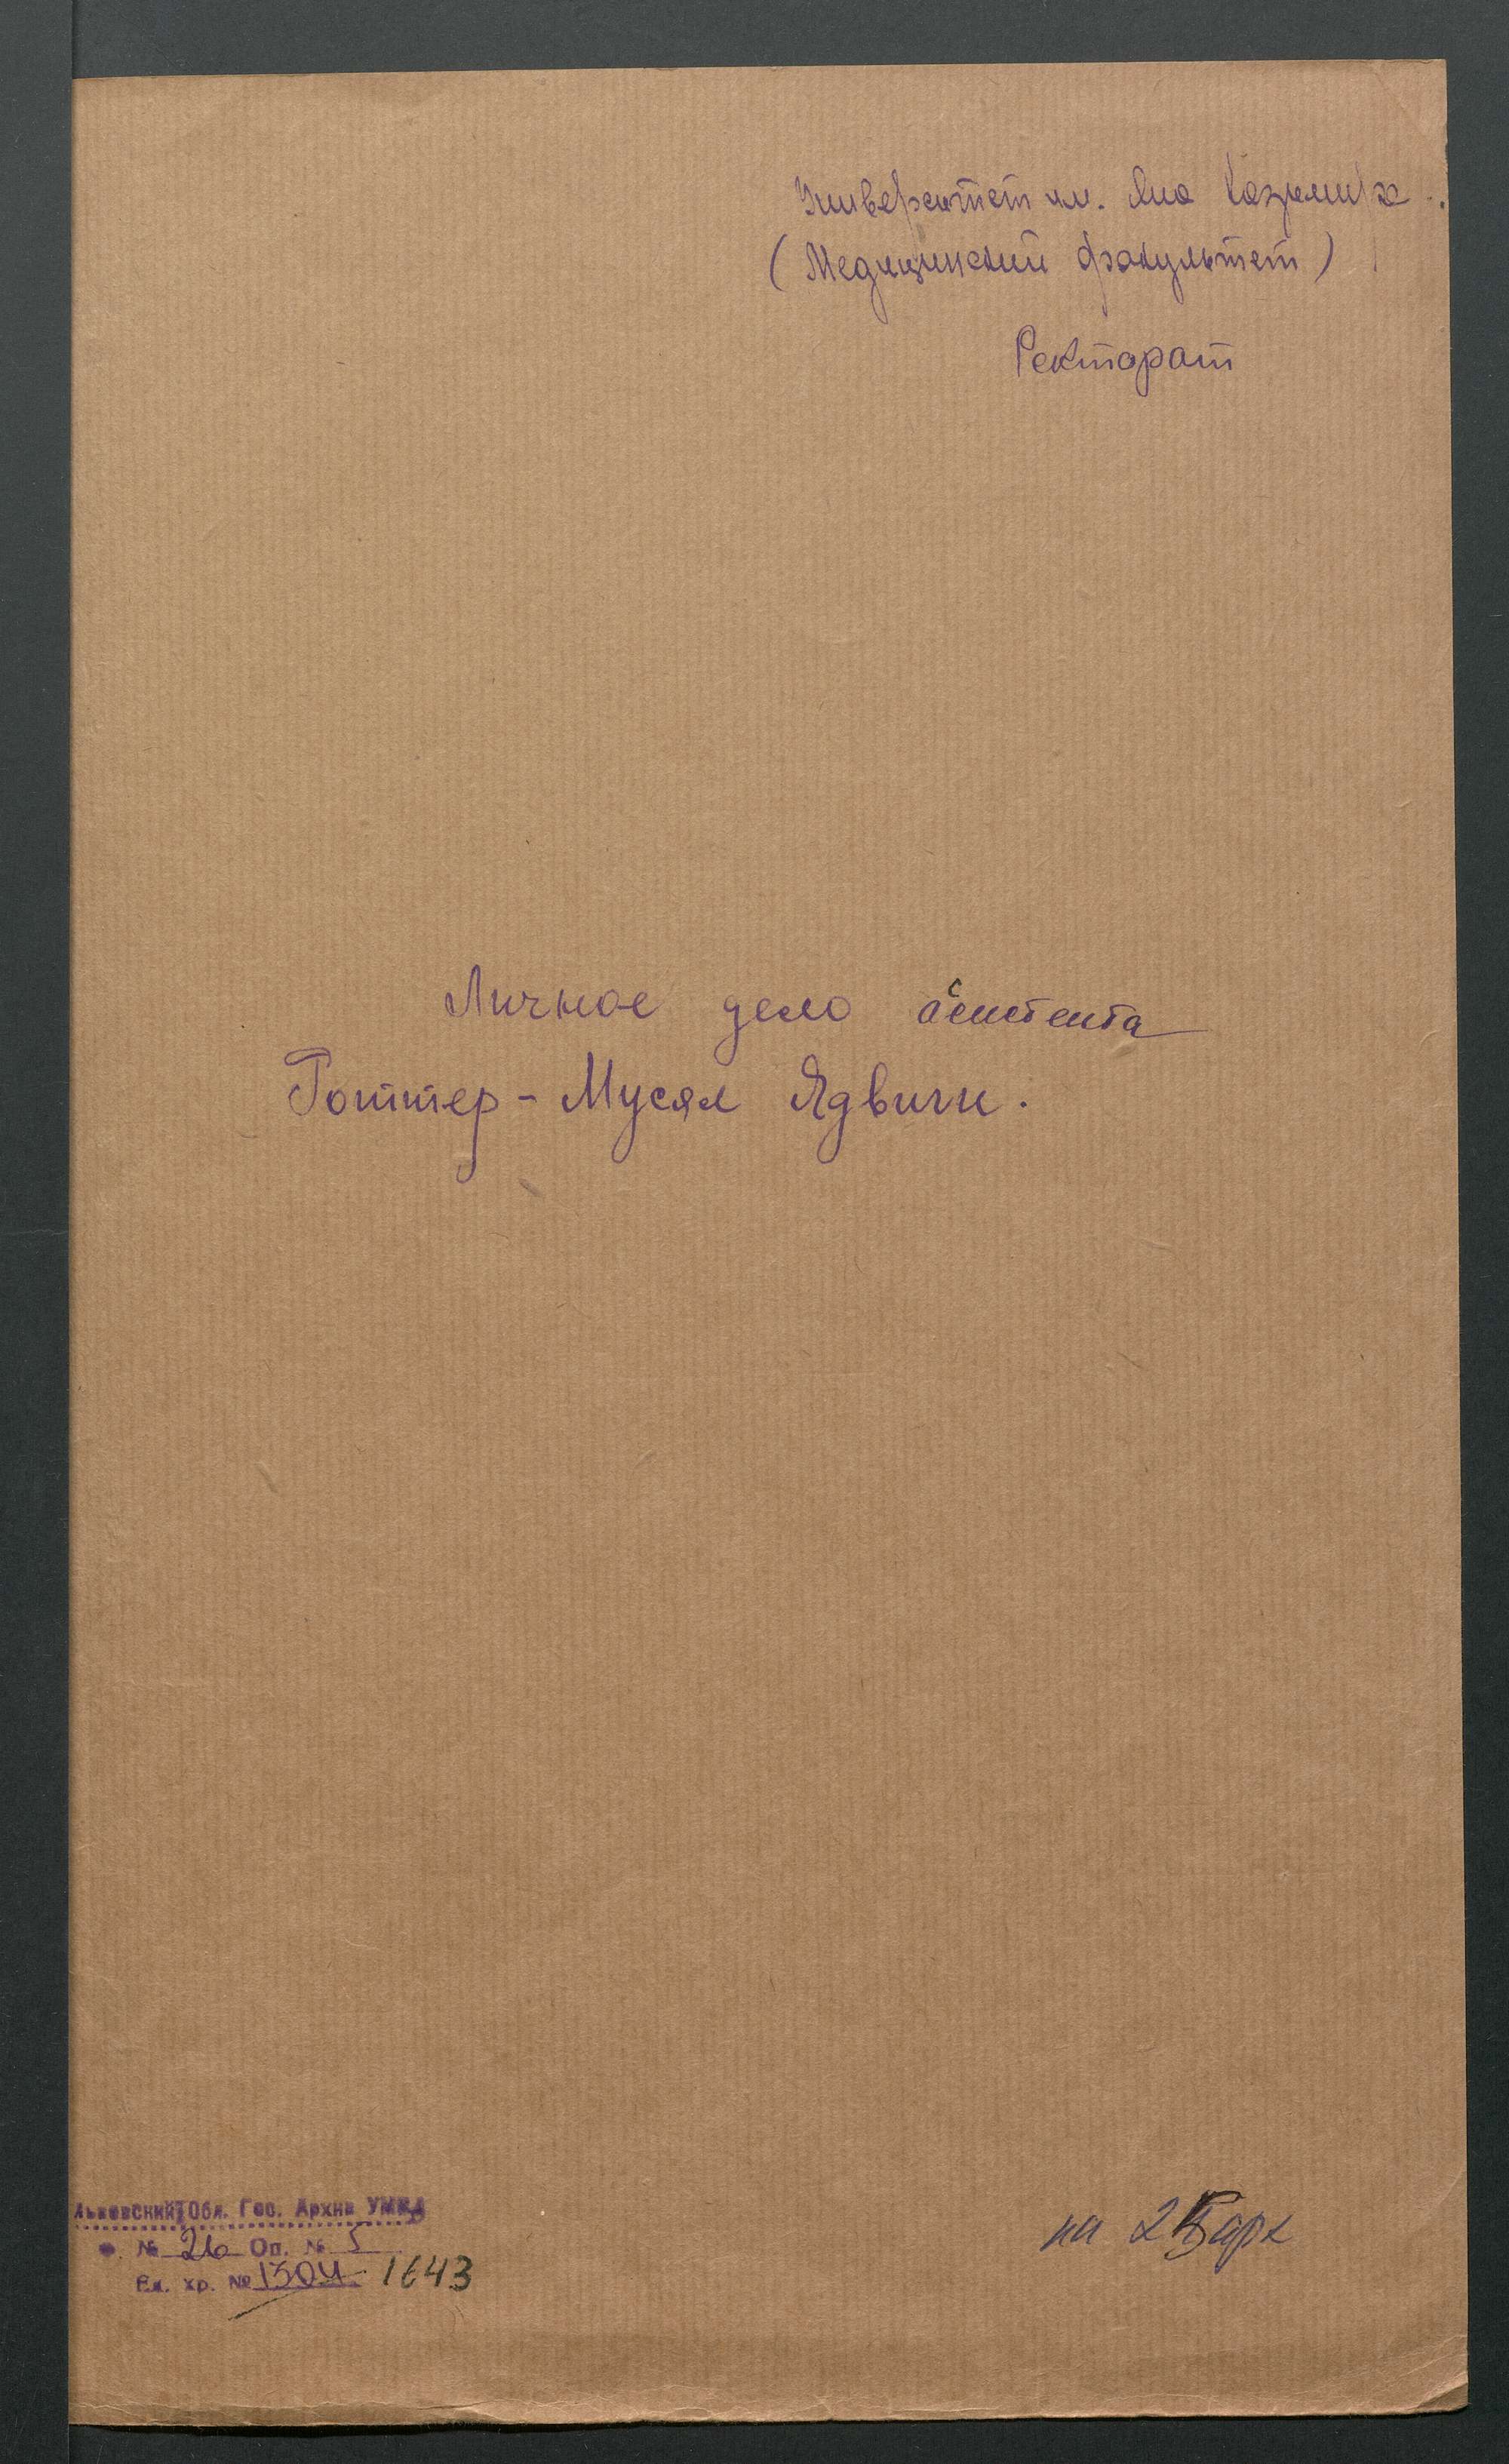 Университет им. Яна Казимира.
(Медицинский факультет)
Ректорат
Личное дело ассистента
Готтер-Мусял Ядвиги.
Львовский Обл. Гос. Архив УМВД
Ф. № 26 Оп. № 5
Ед. хр. № 1504 1643
на арк